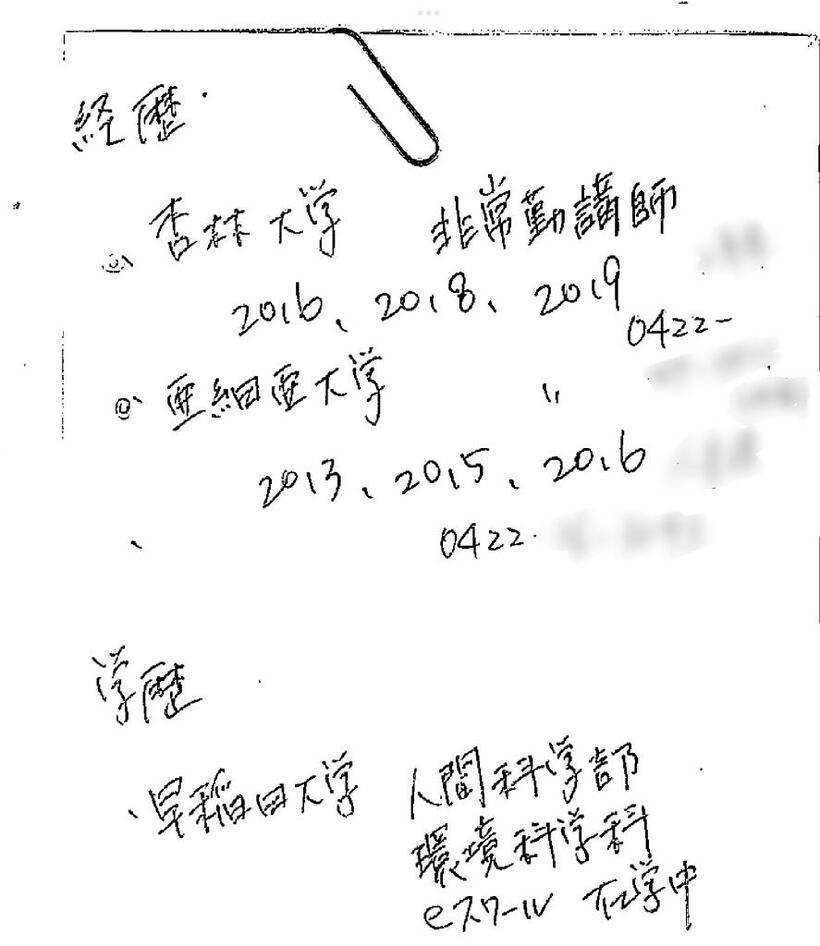 経歴
◎ 杏林大学 非常勤講師
2016、2018、2019
0422-
◎ 亜細亜大学 〃
2013、2015、2016
0422-
学歴
・早稲田大学 人間科学部
環境科学科
eスクール 在学中